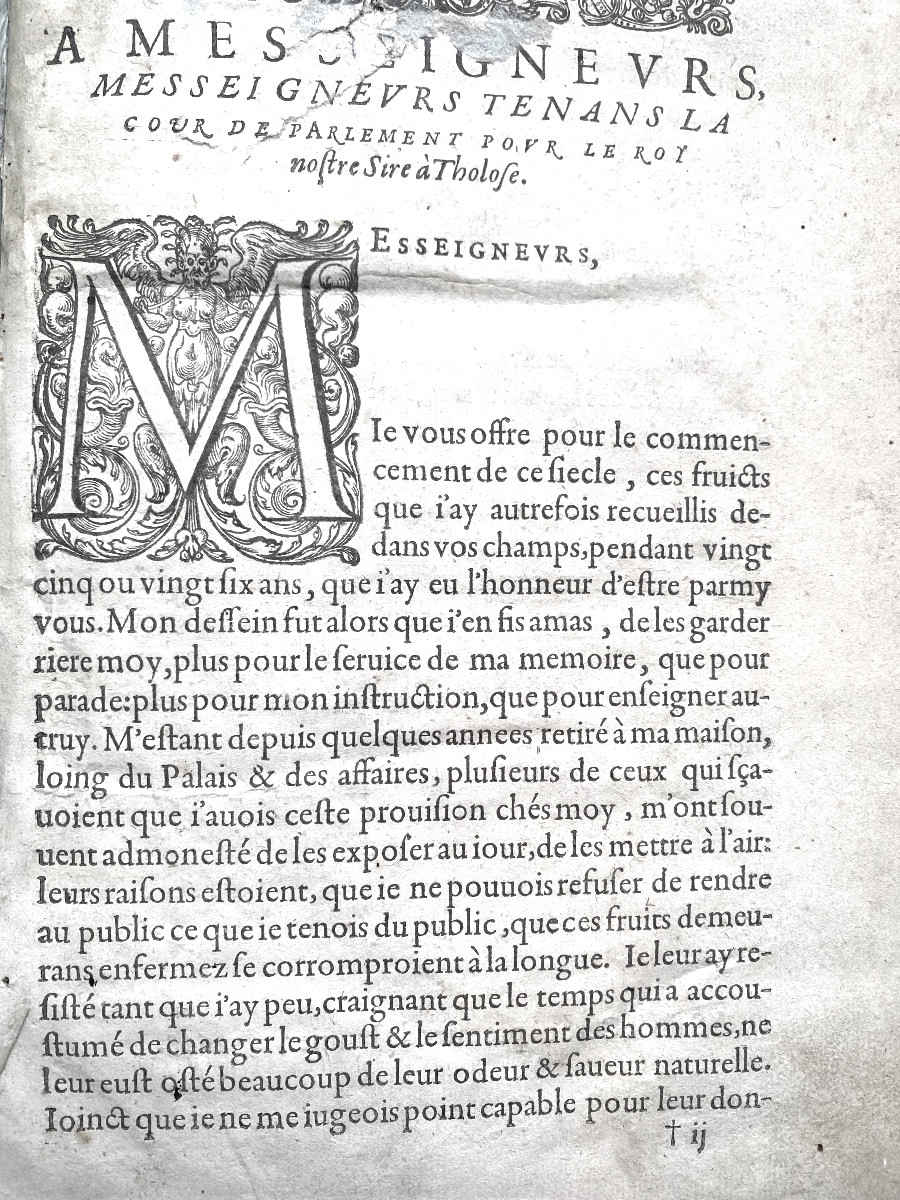 A MESSEIGNEVRS,
MESSEIGNEVRS TENANS LA
COUR DE PARLEMENT POVR LE ROY
noſtre Sire à Tholoſe.
MESSEIGNEVRS,
Ie vous offre pour le commen-
cement de ce ſiecle , ces fruicts
que i'ay autrefois recueillis de-
dans vos champs,pendant vingt
cinq ou vingt ſix ans , que i'ay eu l'honneur d'eſtre parmy
vous. Mon deſſein fut alors que i'en fis amas , de les garder
riere moy,plus pour le ſeruice de ma memoire, que pour
parade:plus pour mon inſtruction,que pour enſeigner au-
truy. M'eſtant depuis quelques annees retiré à ma maiſon,
loing du Palais & des affaires, pluſieurs de ceux qui ſça-
uoient que i'auois ceſte prouiſion chés moy , m'ont ſou-
uent admoneſté de les expoſer au iour,de les mettre à l'air:
leurs raiſons eſtoient, que ie ne pouuois refuſer de rendre
au public ce que ie tenois du public ,que ces fruits demeu-
rans enfermez ſe corromproient à la longue. Ie leur ay re-
ſiſté tant que i'ay peu,craignant que le temps qui a accou-
ſtumé de changer le gouſt & le ſentiment des hommes,ne
leur euſt oſté beaucoup de leur odeur & ſaueur naturelle.
Ioinct que ie ne me iugeois point capable pour leur don-
† ij